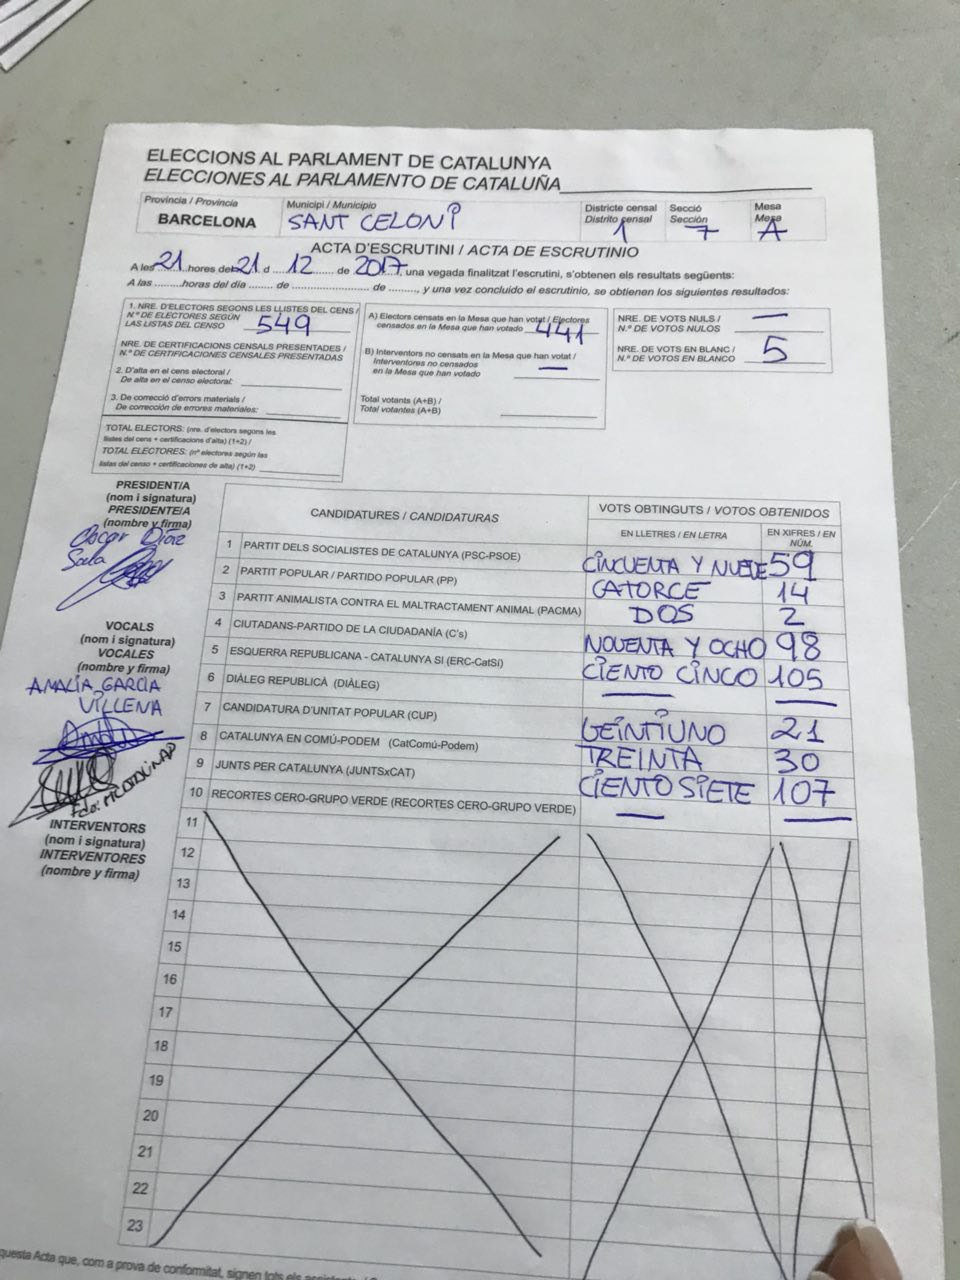 ELECCIONS AL PARLAMENT DE CATALUNYA
ELECCIONES AL PARLAMENTO DE CATALUÑA
Província / Provincia
BARCELONA
Municipi / Municipio
SANT CELONI
Districte censal
Distrito censal
1
Secció
Sección
7
Mesa
Mesa
A
ACTA D'ESCRUTINI / ACTA DE ESCRUTINIO
A les 21 hores del 21 d 12 de 2017, una vegada finalitzat l'escrutini, s'obtenen els resultats següents:
A las ......... horas del día ......... de ......... de ........., y una vez concluido el escrutinio, se obtienen los siguientes resultados:
1. NRE. D'ELECTORS SEGONS LES LLISTES DEL CENS /
N.º DE ELECTORES SEGÚN
LAS LISTAS DEL CENSO 549
NRE. DE CERTIFICACIONS CENSALS PRESENTADES /
N.º DE CERTIFICACIONES CENSALES PRESENTADAS
2. D'alta en el cens electoral /
De alta en el censo electoral:
3. De correcció d'errors materials /
De corrección de errores materiales:
TOTAL ELECTORS: (nre. d'electors segons les
llistes del cens + certificacions d'alta) (1+2) /
TOTAL ELECTORES: (nº electores según las
listas del censo + certificaciones de alta) (1+2)
A) Electors censats en la Mesa que han votat / Electores
censados en la Mesa que han votado 441
B) Interventors no censats en la Mesa que han votat /
Interventores no censados
en la Mesa que han votado —
Total votants (A+B) /
Total votantes (A+B)
NRE. DE VOTS NULS /
N.º DE VOTOS NULOS —
NRE. DE VOTS EN BLANC /
N.º DE VOTOS EN BLANCO 5
PRESIDENT/A
(nom i signatura)
PRESIDENTE/A
(nombre y firma)
Oscar Díaz
Sala
VOCALS
(nom i signatura)
VOCALES
(nombre y firma)
AMALIA GARCIA
VILLENA
INTERVENTORS
(nom i signatura)
INTERVENTORES
(nombre y firma)
CANDIDATURES / CANDIDATURAS
VOTS OBTINGUTS / VOTOS OBTENIDOS
EN LLETRES / EN LETRA
EN XIFRES / EN NÚM.
1 PARTIT DELS SOCIALISTES DE CATALUNYA (PSC-PSOE) CINCUENTA Y NUEVE 59
2 PARTIT POPULAR / PARTIDO POPULAR (PP) CATORCE 14
3 PARTIT ANIMALISTA CONTRA EL MALTRACTAMENT ANIMAL (PACMA) DOS 2
4 CIUTADANS-PARTIDO DE LA CIUDADANÍA (C's) NOVENTA Y OCHO 98
5 ESQUERRA REPUBLICANA - CATALUNYA SÍ (ERC-CatSí) CIENTO CINCO 105
6 DIÀLEG REPUBLICÀ (DIÀLEG) — —
7 CANDIDATURA D'UNITAT POPULAR (CUP) VEINTIUNO 21
8 CATALUNYA EN COMÚ-PODEM (CatComú-Podem) TREINTA 30
9 JUNTS PER CATALUNYA (JUNTSxCAT) CIENTO SIETE 107
10 RECORTES CERO-GRUPO VERDE (RECORTES CERO-GRUPO VERDE) — —
11
12
13
14
15
16
17
18
19
20
21
22
23
questa Acta que, com a prova de conformitat, signen tots els